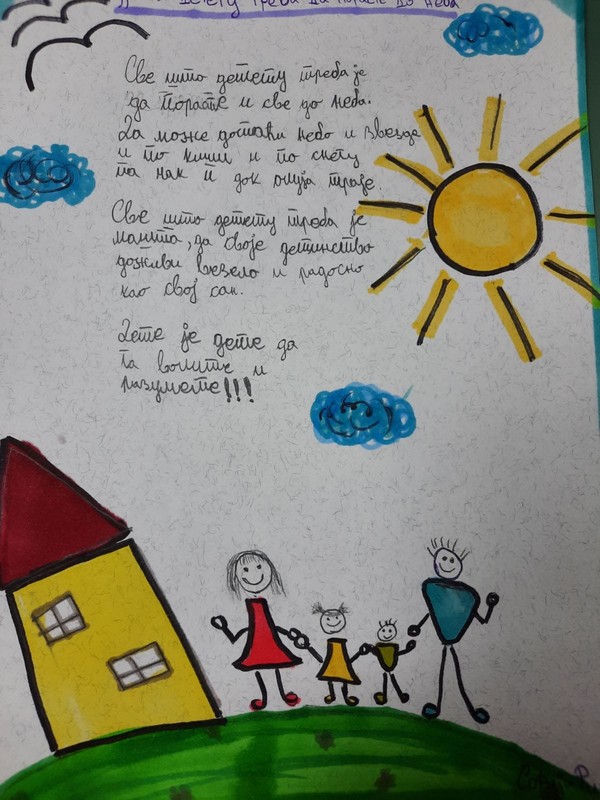 Детету треба да порасте до неба
Све што детету треба је
да порасте и све до неба.
Да може дотаћи небо и звезда
и по киши и по снегу
па чак и док олуја траје.
Све што детету треба је
машта, да своје детинство
доживи весело и радосно
као свој сан.
Дете је дете да
га волите и
разумете!!!